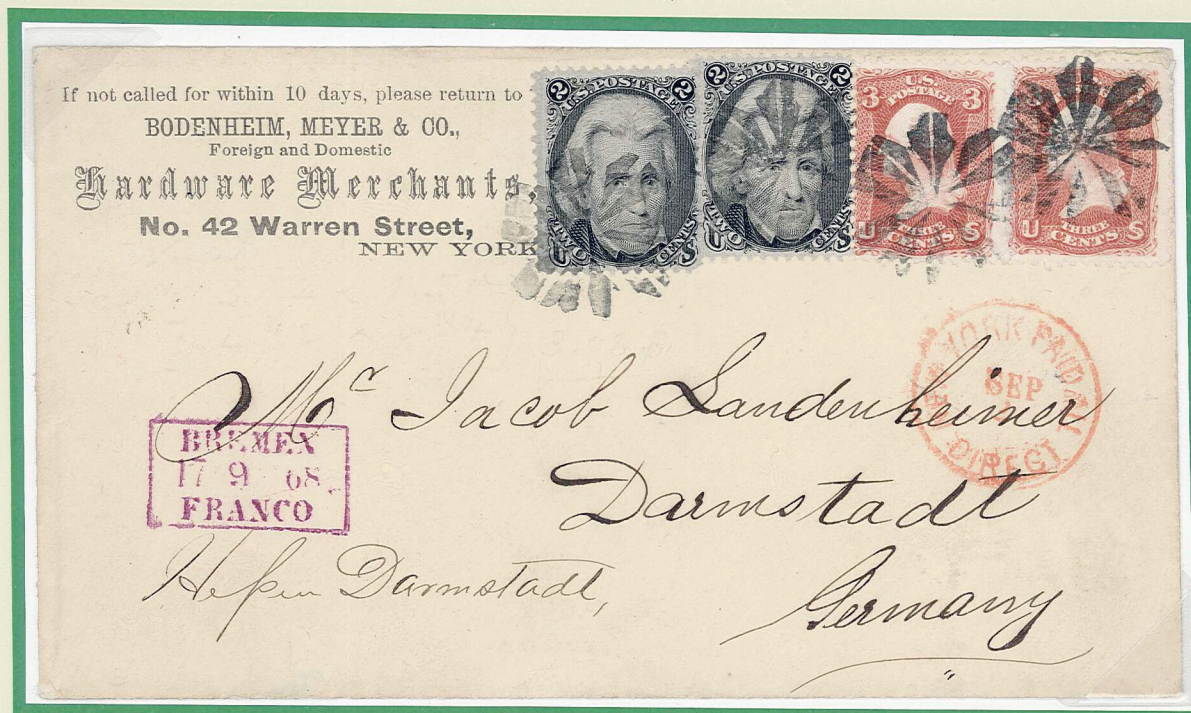 If not called for within 10 days, please return to
BODENHEIM, MEYER & CO.,
Foreign and Domestic
Hardware Merchants,
No. 42 Warren Street,
NEW YORK
2 U.S. POSTAGE 2
U TWO CENTS S
2 U.S. POSTAGE 2
U TWO CENTS S
3 U.S. POSTAGE 3
U THREE CENTS S
U THREE CENTS S
NEW YORK PAID ALL
SEP
DIRECT
Mr Jacob Landenheimer
BREMEN
17 9 68
FRANCO
Darmstadt
Heſsen Darmstadt,
Germany